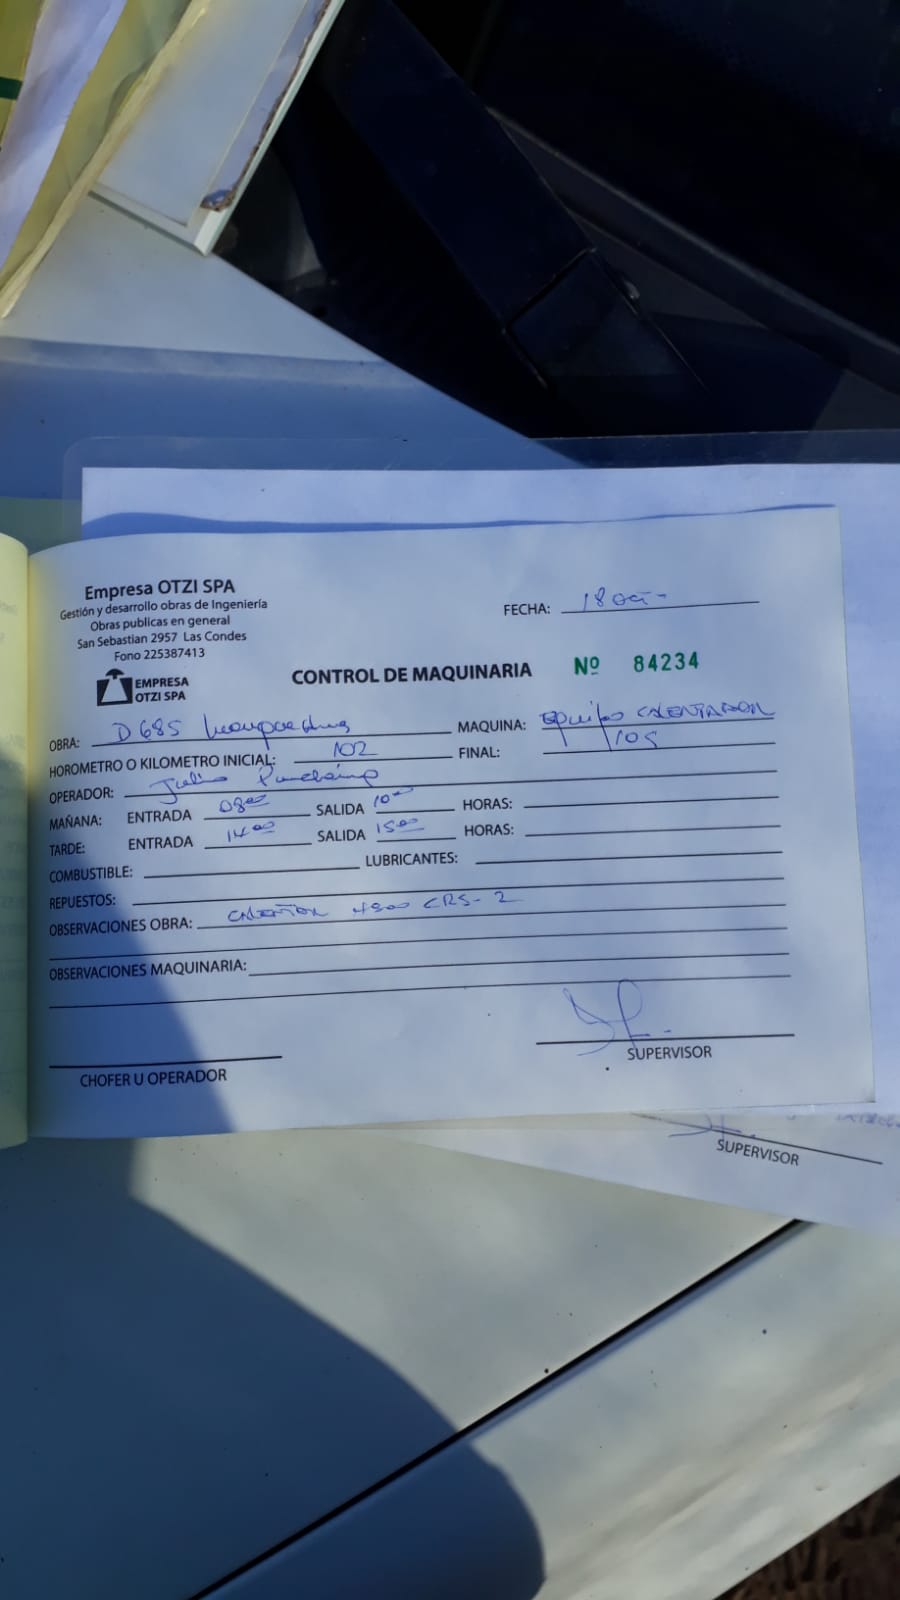 Empresa OTZI SPA
Gestión y desarrollo obras de Ingeniería
Obras publicas en general
San Sebastian 2957 Las Condes
Fono 225387413
EMPRESA
OTZI SPA
FECHA: 18
CONTROL DE MAQUINARIA Nº 84234
OBRA: D685 MAQUINA: Equipo CALENTADOR
HOROMETRO O KILOMETRO INICIAL: 102 FINAL: 105
OPERADOR: Julio
MAÑANA: ENTRADA 0800 SALIDA 1000 HORAS:
TARDE: ENTRADA 1400 SALIDA 1500 HORAS:
COMBUSTIBLE: LUBRICANTES:
REPUESTOS:
OBSERVACIONES OBRA: CRS-2
OBSERVACIONES MAQUINARIA:
CHOFER U OPERADOR SUPERVISOR
SUPERVISOR